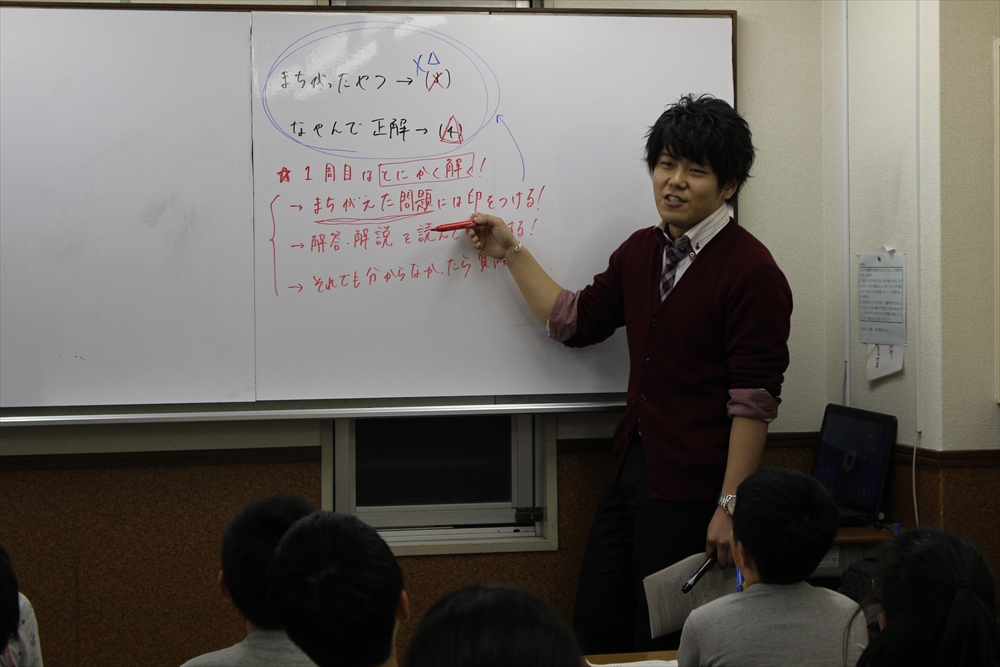 まちがったやつ→(4)
× △
なやんで正解→(4)
☆1周目はとにかく解く!
→まちがえた問題には印をつける!
→解答・解説を読んで る!
→それでも分からなかったら質